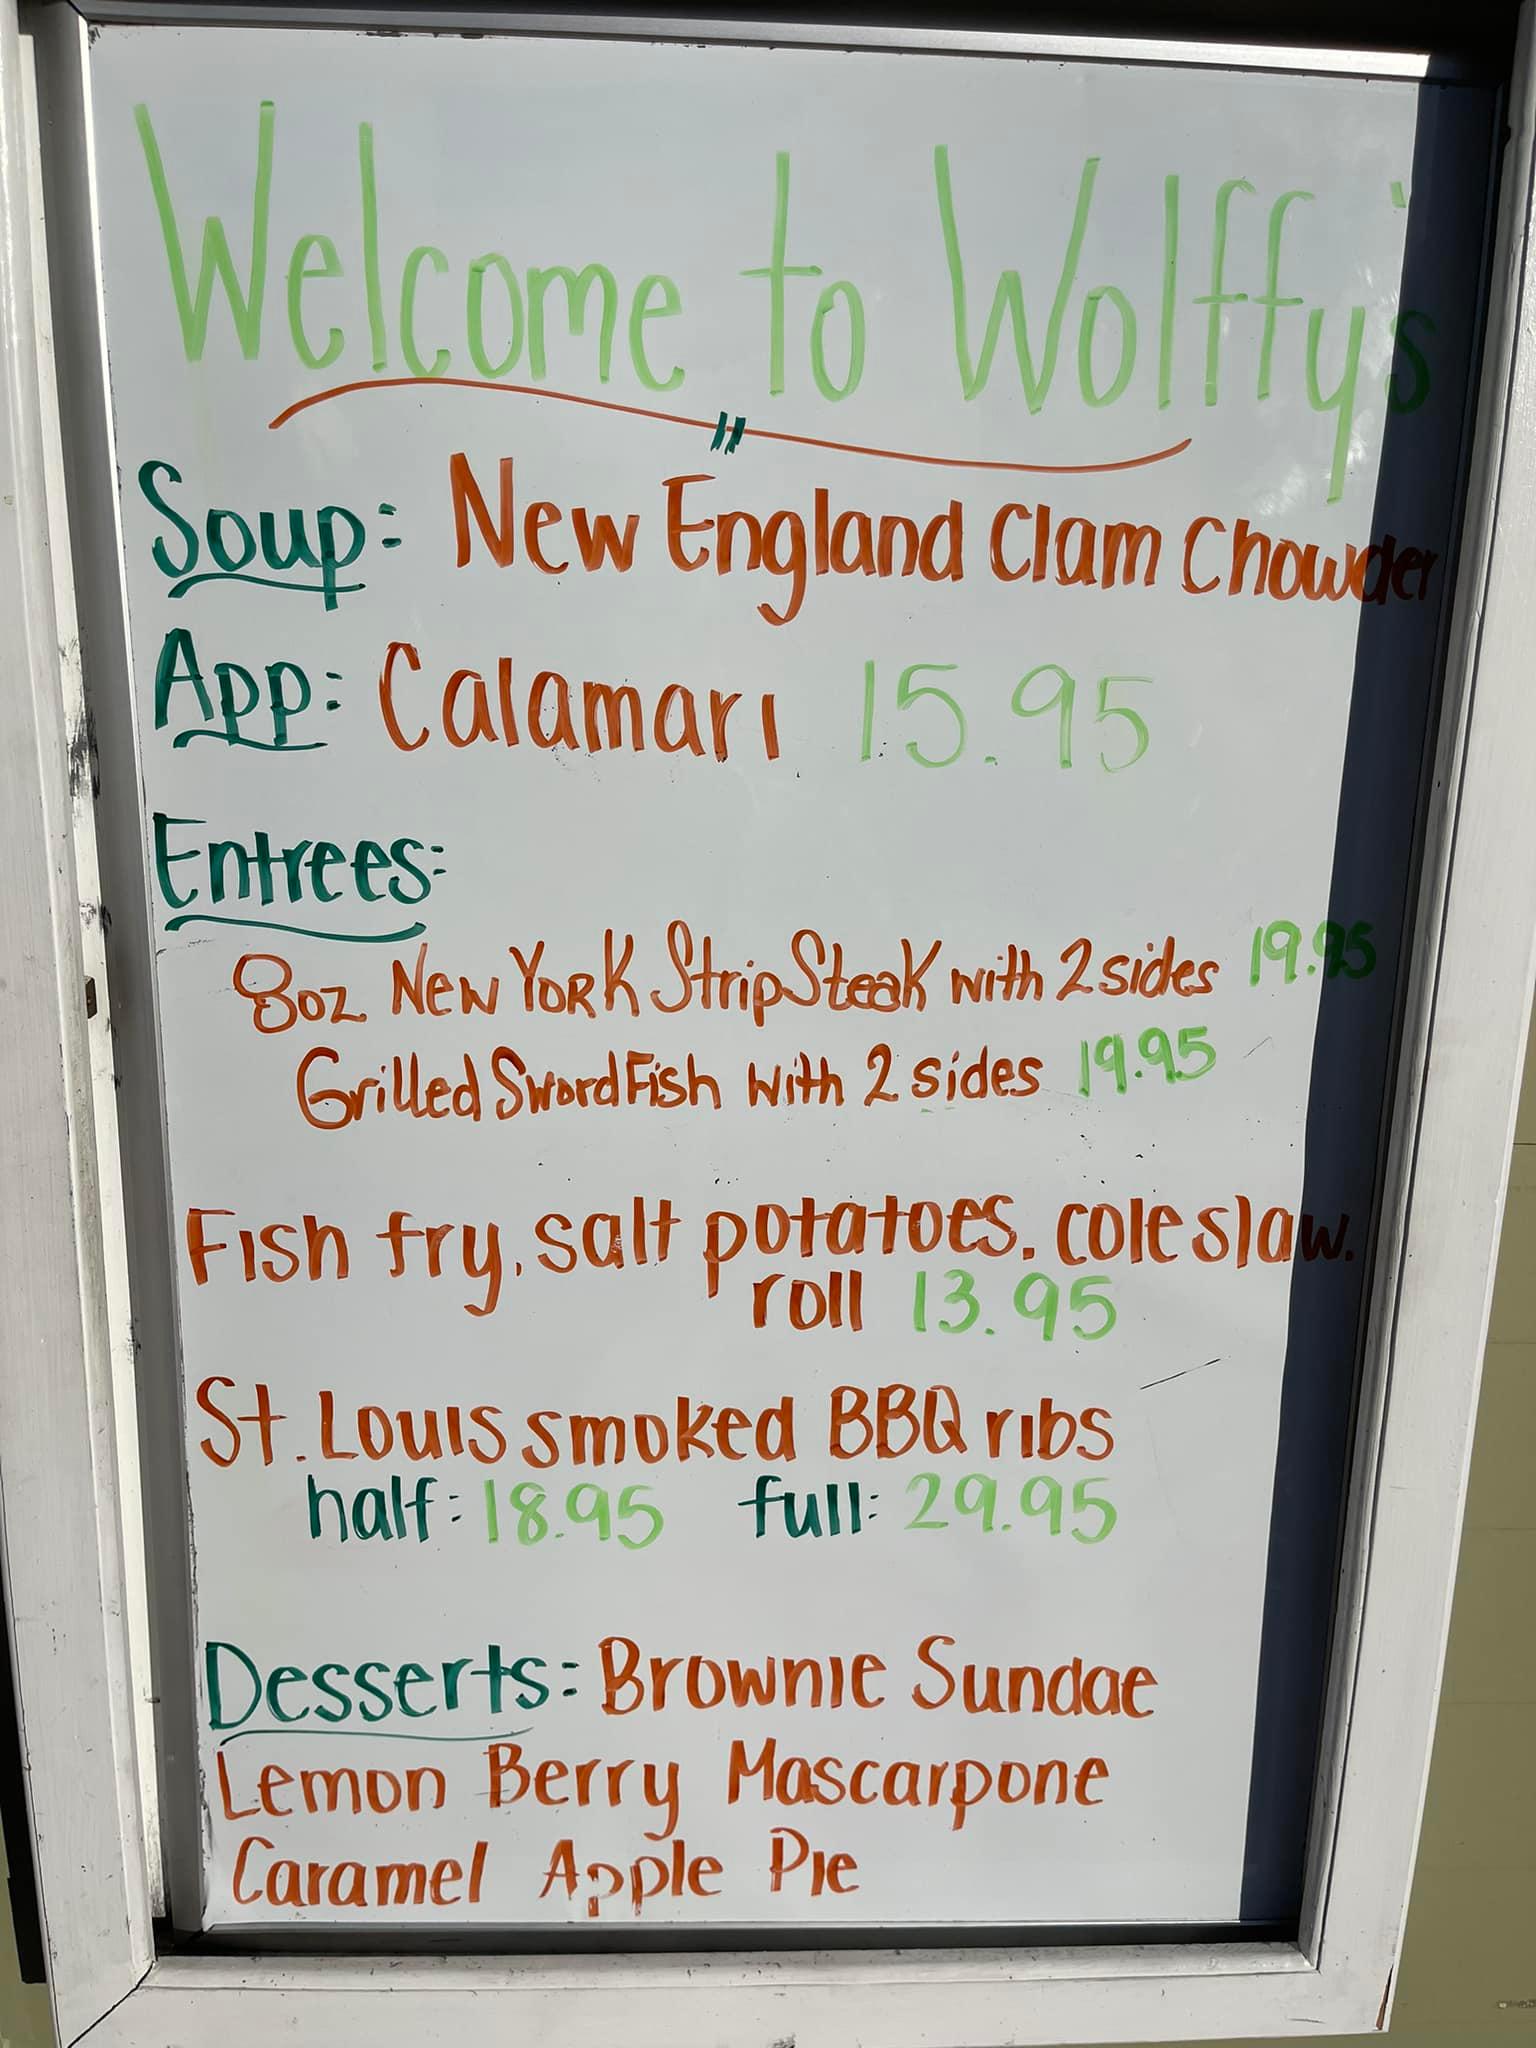 Welcome to Wolffy's
Soup: New England Clam Chowder
App: Calamari 15.95
Entrees:
8oz New York Strip Steak with 2 sides 19.95
Grilled SwordFish with 2 sides 19.95
Fish fry, salt potatoes, coleslaw,
roll 13.95
St. Louis smoked BBQ ribs
half: 18.95 full: 29.95
Desserts: Brownie Sundae
Lemon Berry Mascarpone
Caramel Apple Pie